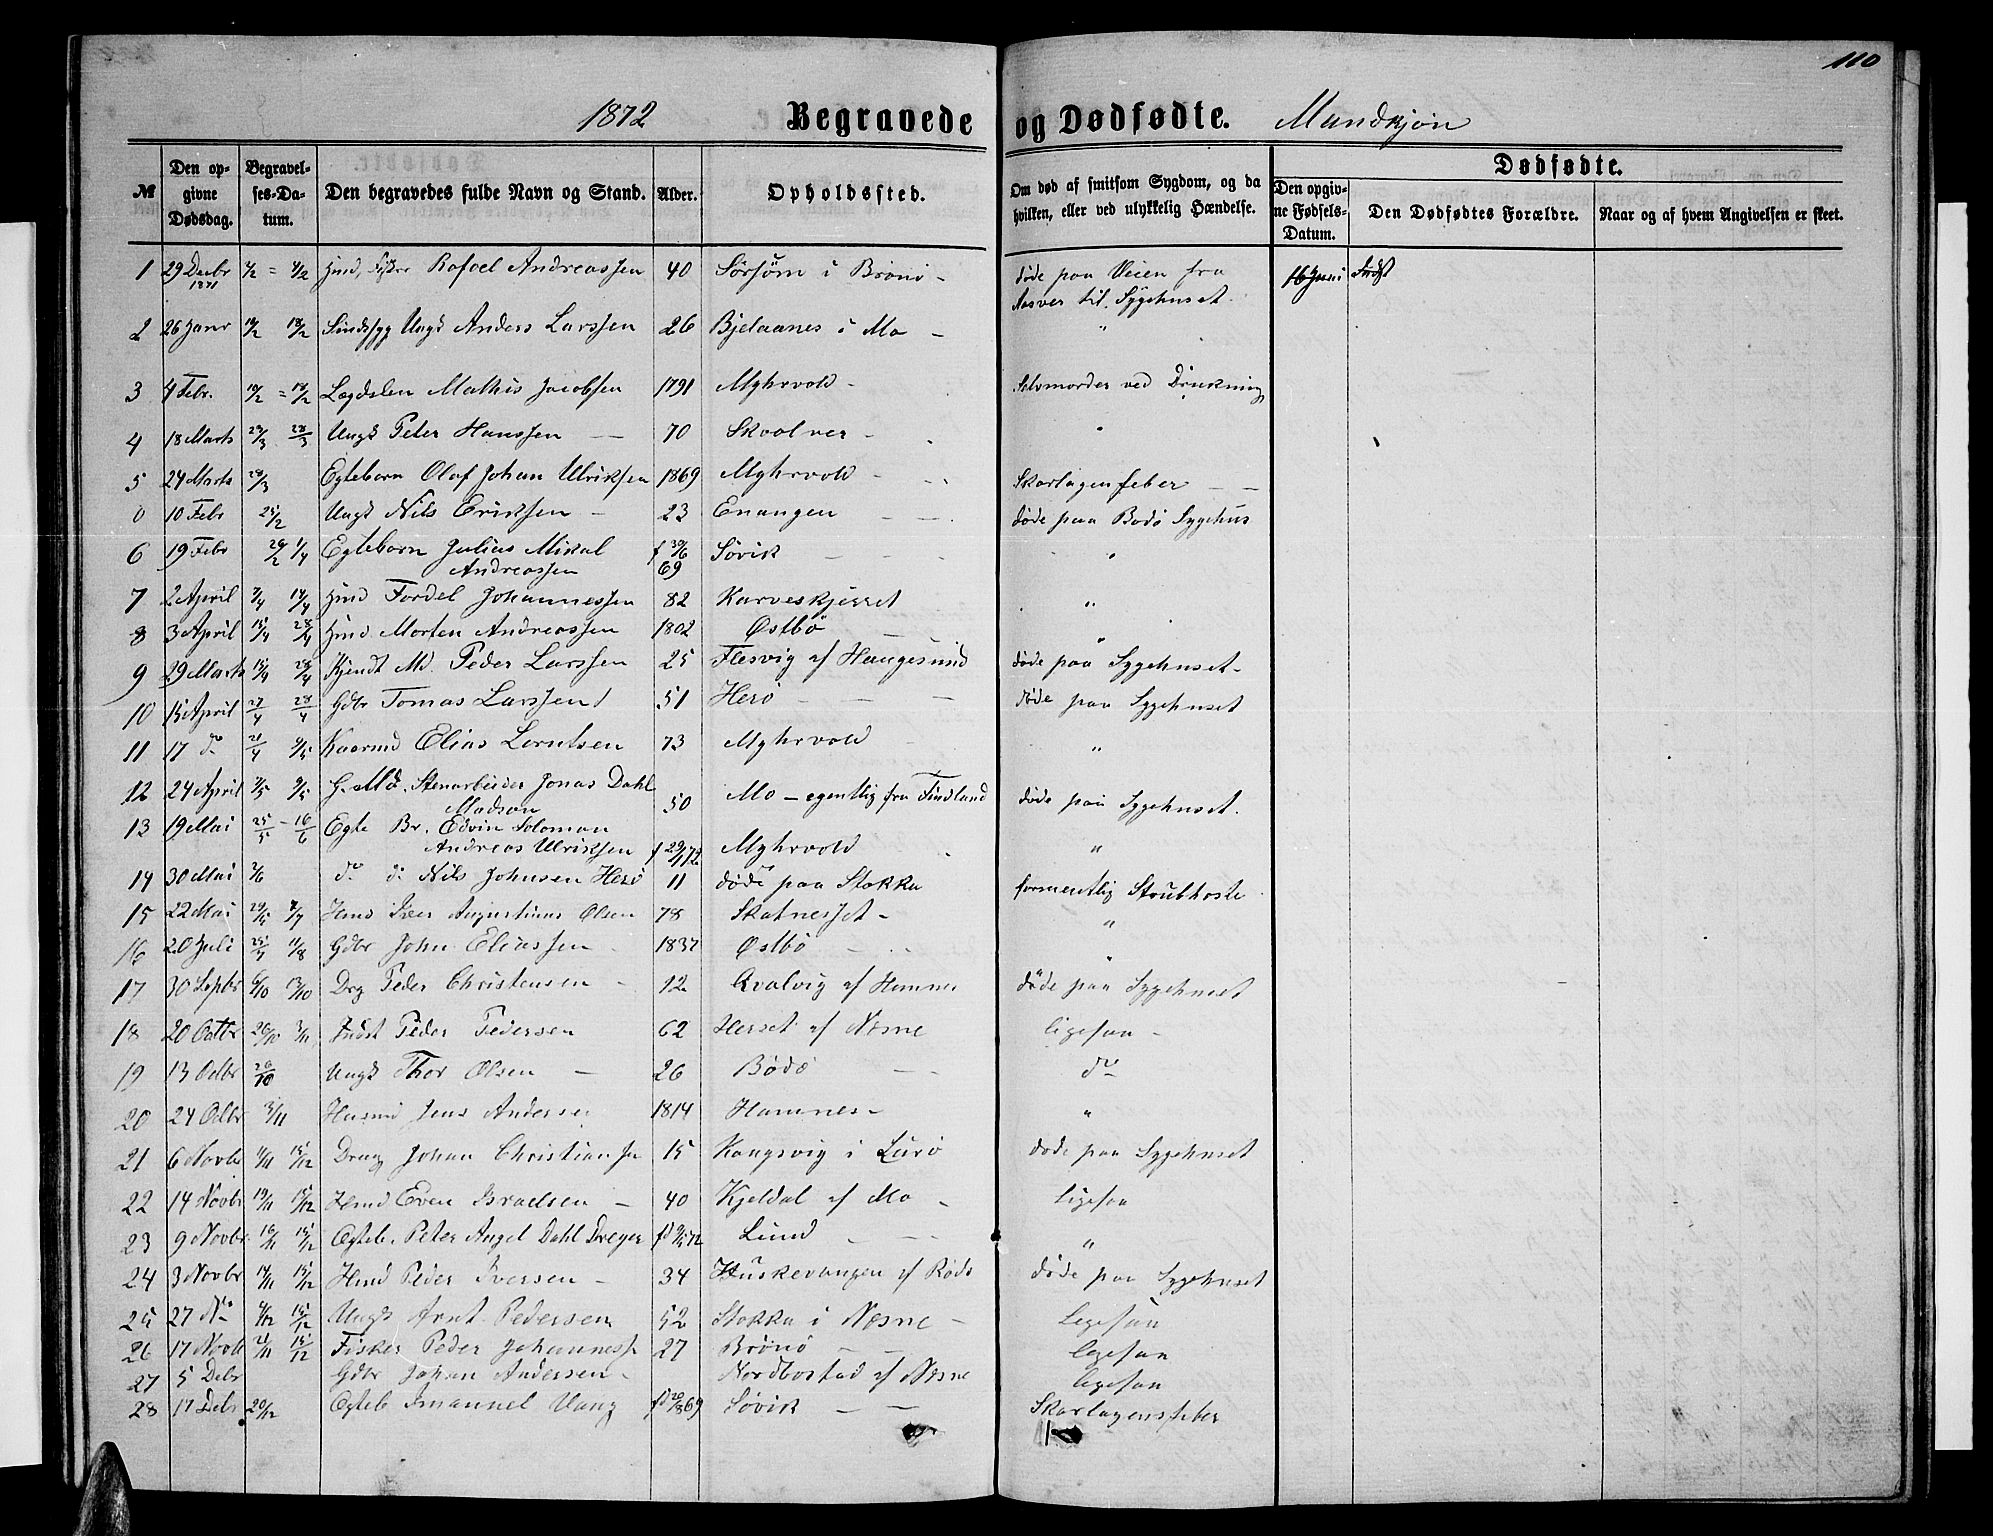 110
1872 Begravede og Dødfødte. Mandkjøn
№
Den opgivne Dødsdag.
Begravelses-Datum.
Den begravedes fulde Navn og Stand.
Alder.
Opholdssted.
Om død af smitsom Sygdom, og da hvilken, eller ved ulykkelig Hændelse.
Dødfødte.
Den opgivne Fødsels-Datum.
Den Dødfødtes Forældre.
Naar og af hvem Angivelsen er skeet.
1 29 Decbr 1871 Rafael Andreassen 40 i Brönö - døde paa Veien fra 16 Juni
Aasver til Sygehuset.
2 26 Janr Sindssyg Ungk Anders Larssen 26 Bjelaanes i Mo - "
3 4 Febr. 10/2 = 18/2 Lægdslem Mathis Jacobsen 1791 Myhrvold - Selvmorder ved Drukning
4 18 Marts 23/3 Ungk Peter Hanssen - 70 Skoolver - "
5 24 Marts 28/3 Egtebarn Olaf Johan Ulriksen 1869 Myhrvold - Skarlagenfeber - -
0 10 Febr 25/2 Ungk Nils Eriksen - 23 Enangen - - døde paa Bodö Sygehus
6 19 Febr 1/4 Egtebarn Julius Mikal f 30/6 Søvik - - - "
Andreassen 69
7 2 April 14/4 Hmd Fordel Johannessen 82 Karveskjæret "
8 3 April 15/4 28/4 Hmd Morten Andreassen 1802 Østbö "
9 29 Marts 15/4 28/4 Md. Peder Larssen 25 Flesvig af Haugesund døde paa Sygehuset -
10 15 April 27/4 28/4 Gdbr Tomas Larssen 51 Herö - - døde paa Sygehuset
11 17 do 21/4 9/5 Kaarmd Elias Lorntsen 73 Myhrvold - "
12 24 April 9/5 G. Md. Stenarbeider Jonas Dahl
Madson 50 Mo - egentlig fra Findland døde paa Sygehuset.
13 19 Mai 25/5 - 16/6 Egte Br. Edvin Solomon
Andreas Ulriksen Myhrvold "
14 30 Mai do do Nils Johnsen Herö 11 døde paa Stokka formentlig Strubhoste
15 22 Mai 29/5 7/7 Iver Augustinus Olsen 78 Skatnesset - "
16 20 Juli 25/7 11/8 Gdbr John Eliassen 1837 Østbö - "
17 30 Septbr 6/10 13/10 Drg Peder Christensen - 12 Qvalvig af Hemnes døde paa Sygehuset
18 20 Octbr 26/10 3/11 Indst Peder Pedersen 62 Herset af Nesne ligesaa -
19 13 Octbr 20/10 Ungk Thor Olsen - 26 Bødö - - do
20 24 Octbr 3/11 Husmd Jens Andersen 1814 Hamnes - "
21 6 Novbr 15/12 Dreng Johan Christiansen 15 Kongsvig i Lurö døde paa Sygehuset
22 14 Novbr 19/11 15/12 Hmd Even Israelsen - 40 Kjeldal af Mo - ligesaa
23 9 Novbr. 16/11 15/12 Egteb. Peter Angel Dahl Dreyer Lund - - - "
24 3 Novbr 14/11 15/12 Hmd Peder Iversen - 34 Huskevangen af Rödö døde paa Sygehuset
25 27 do 15/12 Ungk Arnt Pedersen 52 Stokka i Nesne - ligesaa
26 17 Novbr 21/11 15/12 Fisker Peder Johanness. 27 Brönö - - ligesaa
27 5 Debr Gdbr Johan Andersen - Nordbostad af Nesne ligesaa
28 17 Debr 20/12 Egteb Imanuel Vang Søvik - - Skarlagensfeber